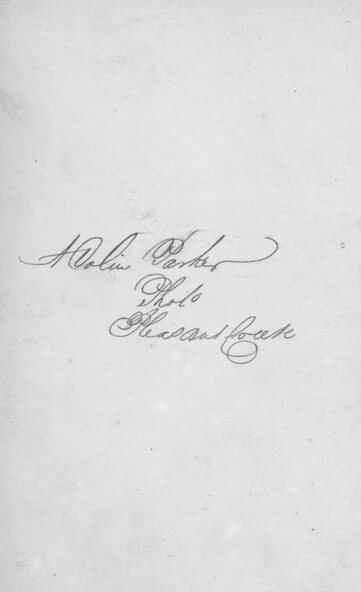 A Parker
Photo
Pleasant Creek